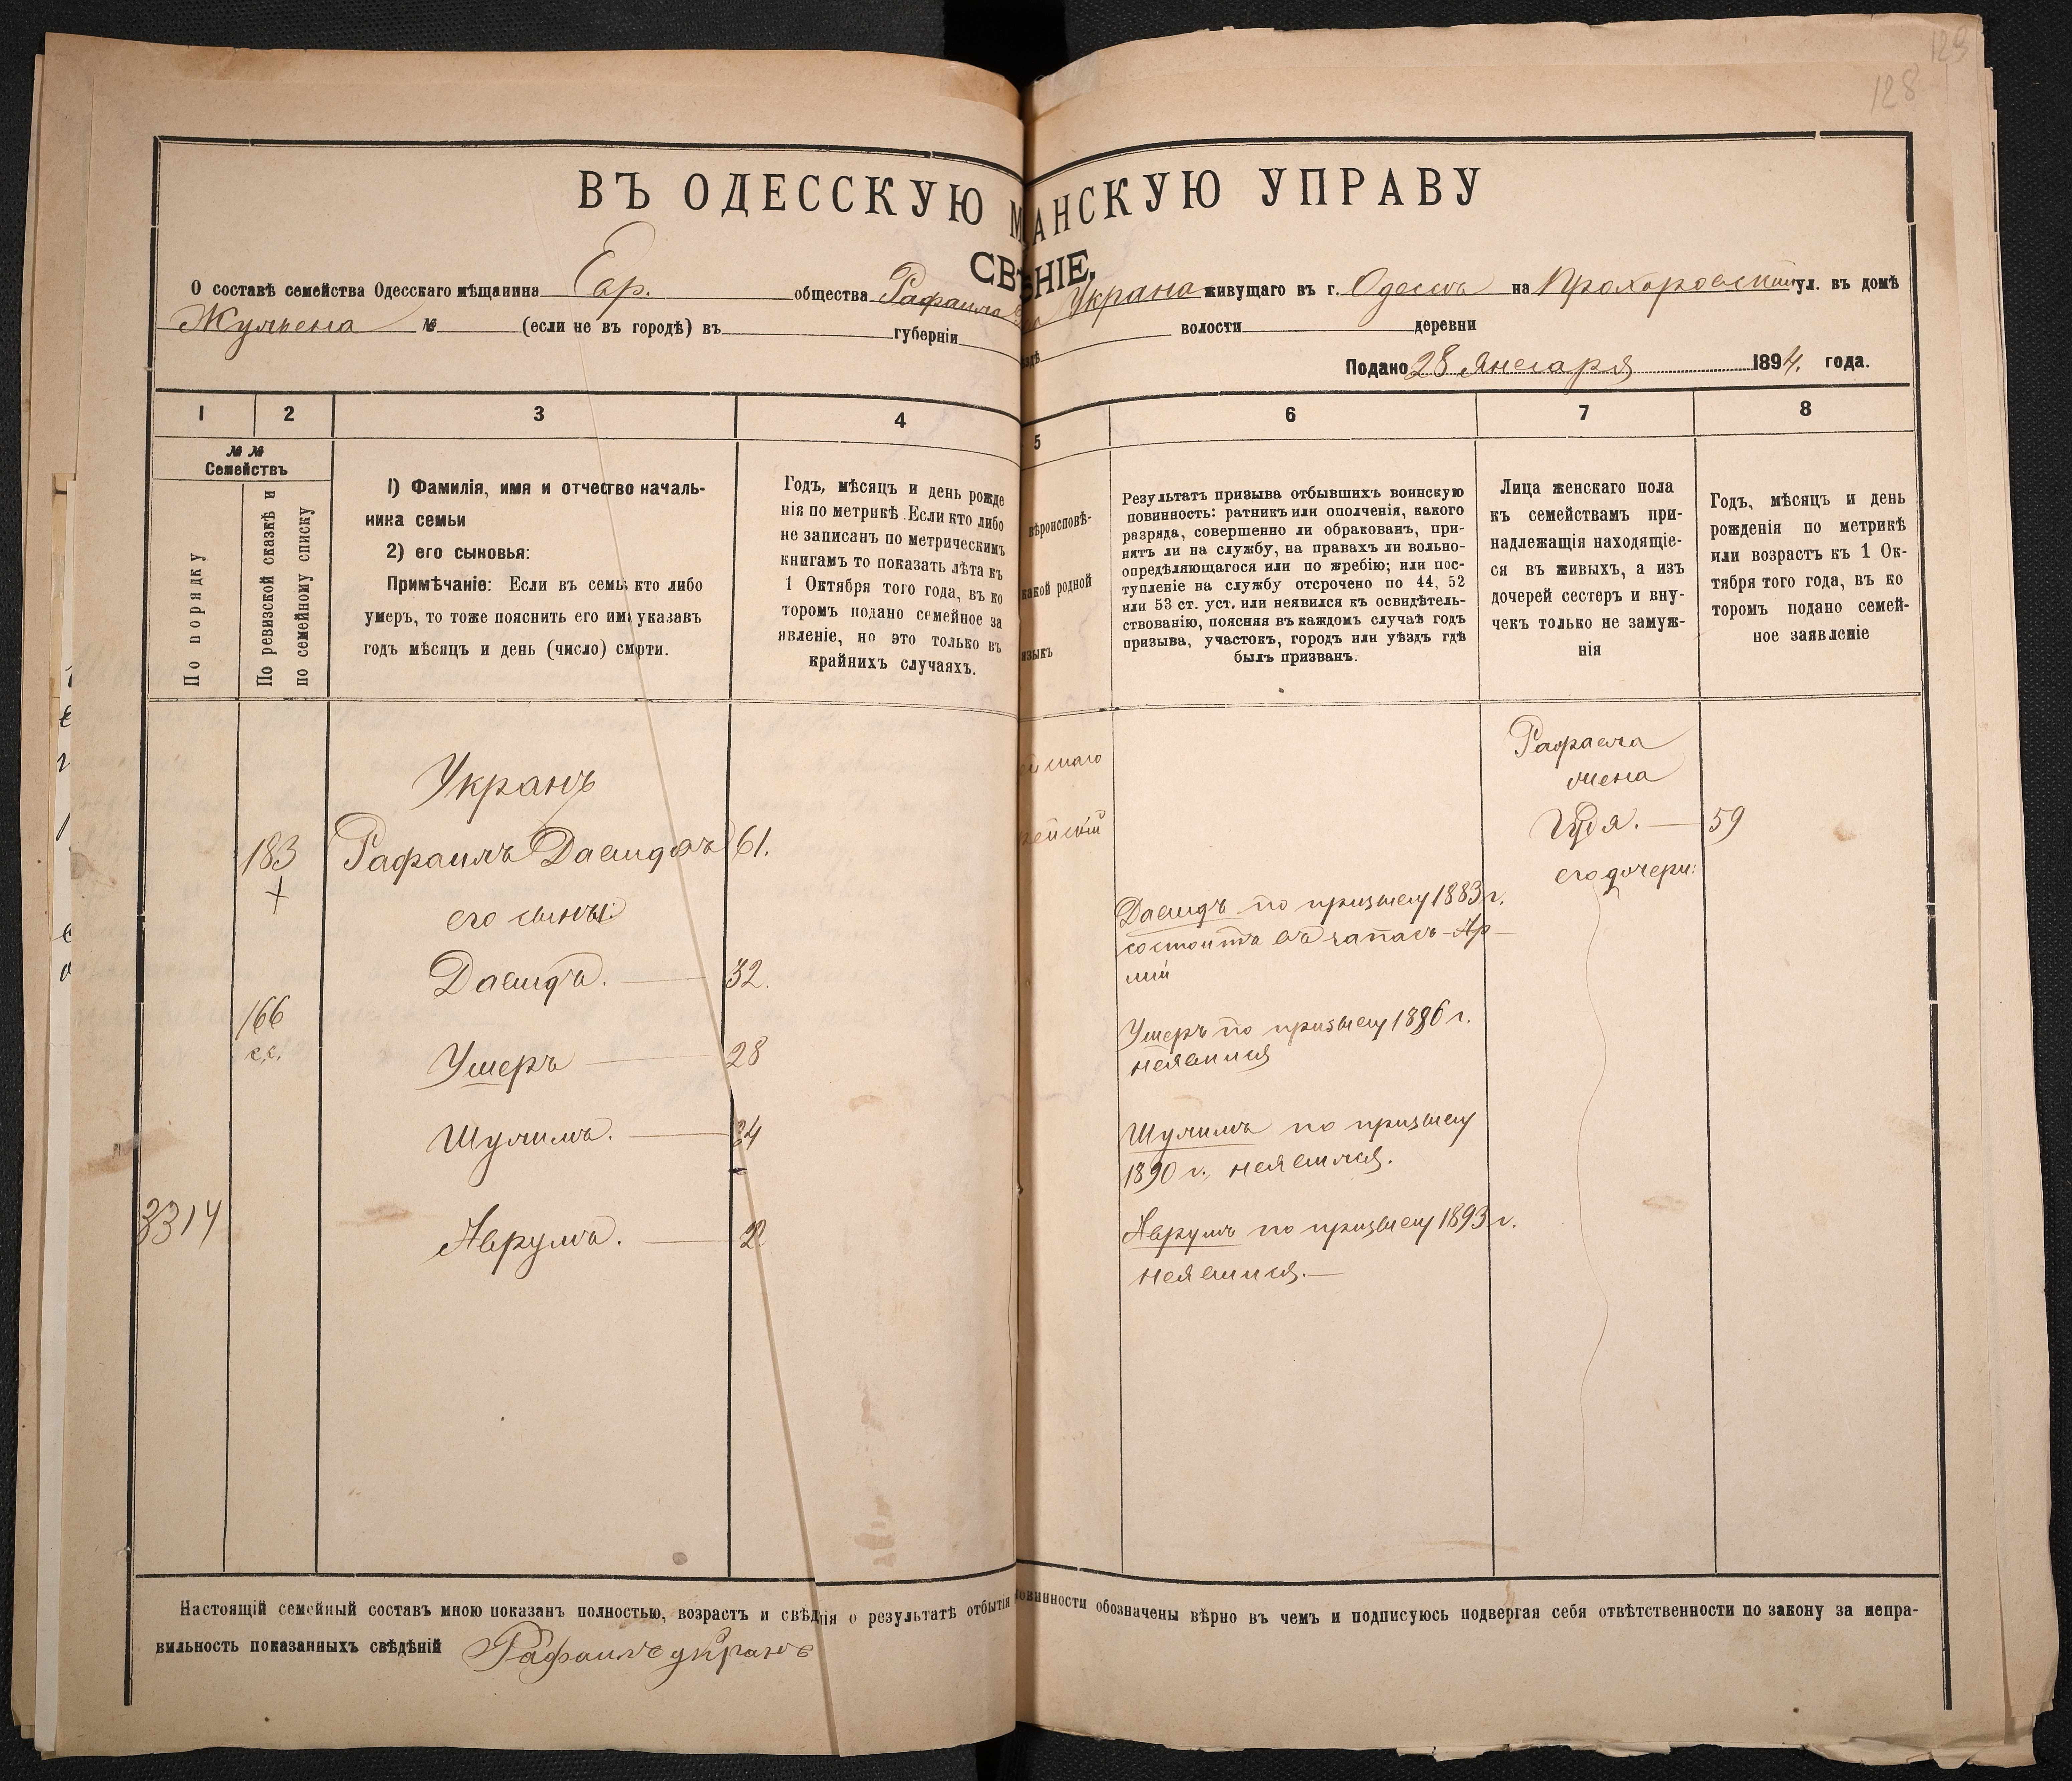 129
128
ВЪ ОДЕССКУЮ М АНСКУЮ УПРАВУ
СВѢ НІЕ.
О составѣ семейства Одесскаго мѣщанина Евр. общества Рафаила Украна живущаго въ г. Одессѣ на Прохоровской ул. въ домѣ
Жульена № (если не въ городѣ) въ губерніи ѣздѣ волости деревни
Подано 28 Января 1894. года.
1 2 3 4 5 6 7 8
№ №
Семействъ
По порядку
По ревизской сказкѣ и
по семейному списку
1) Фамилія, имя и отчество началь-
ника семьи
2) его сыновья:
Примѣчаніе: Если въ семьѣ кто либо
умеръ, то тоже пояснить его имя указавъ
годъ мѣсяцъ и день (число) смерти.
Годъ, мѣсяцъ и день рожде
нія по метрикѣ. Если кто либо
не записанъ по метрическимъ
книгамъ то показать лѣта къ
1 Октября того года, въ ко
торомъ подано семейное за
явленіе, но это только въ
крайнихъ случаяхъ.
вѣроисповѣ-
какой родной
языкъ
Результатъ призыва отбывшихъ воинскую
повинность: ратникъ или ополченія, какого
разряда, совершенно ли обракованъ, при-
нятъ ли на службу, на правахъ ли вольно-
опредѣляющагося или по жребію; или пос-
тупленіе на службу отсрочено по 44, 52
или 53 ст. уст. или неявился къ освидѣтель-
ствованію, поясняя въ каждомъ случаѣ годъ
призыва, участокъ, городъ или уѣздъ гдѣ
былъ призванъ.
Лица женскаго пола
къ семействамъ при-
надлежащія находящіе-
ся въ живыхъ, а изъ
дочерей сестеръ и вну-
чекъ только не замуж-
нія
Годъ, мѣсяцъ и день
рожденія по метрикѣ
или возрастъ къ 1 Ок-
тября того года, въ ко
торомъ подано семей-
ное заявленіе
Укранъ
183 Рафаилъ Давидовъ 61.
+
его сыновья:
Давидъ. — 32.
166
с.с.
Ушеръ — 28
Шулимъ. — 24
3314 Аврумъ. — 22
ейскаго
рейскій
Давидъ по призыву 1883 г.
состоитъ въ запасѣ Ар-
міи
Ушеръ по призыву 1886 г.
неявился
Шулимъ по призыву
1890 г., неявился.
Аврумъ по призыву 1893 г.
неявился. —
Рафаила
жена
59
его дочери:
Настоящій семейный составъ мною показанъ полностью, возрастъ и свѣденія о результатѣ отбытія повинности обозначены вѣрно въ чемъ и подписуюсь подвергая себя отвѣтственности по закону за непра-
вильность показанныхъ свѣдѣній Рафаилъ укранъ